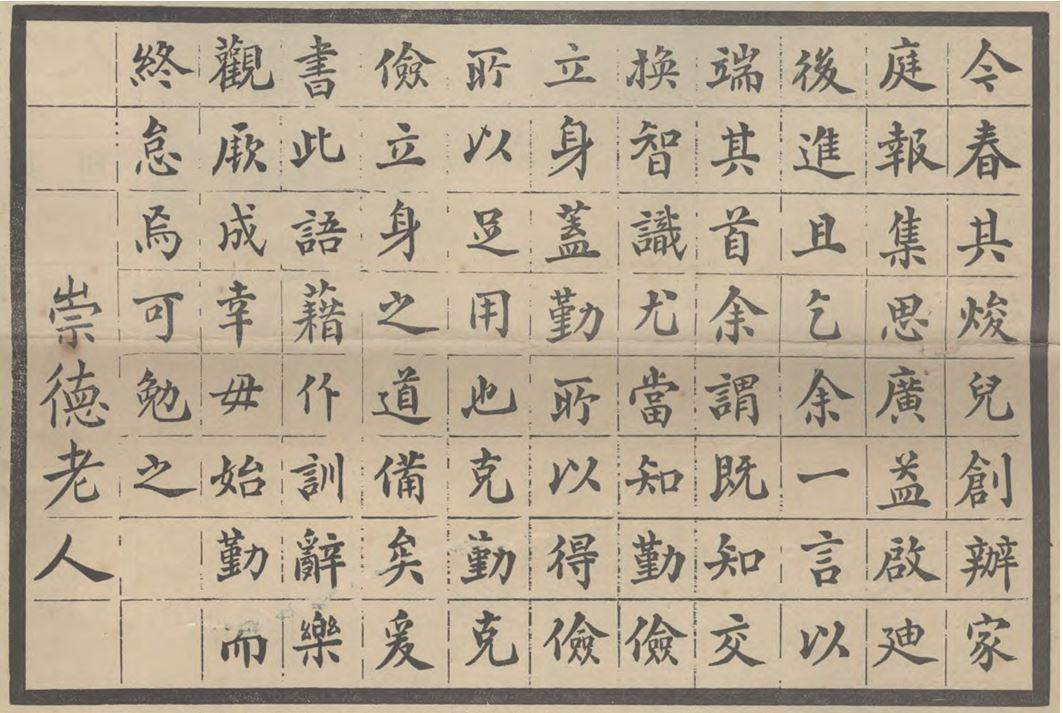 今春其焌兒創辦家
庭報集思廣益啟廸
後進且乞余一言以
端其首余謂既知交
換智識尤當知勤儉
立身蓋勤所以得儉
所以足用也克勤克
儉立身之道備矣爰
書此語藉作訓辭樂
觀厥成幸毋始勤而
終怠焉可勉之
崇德老人